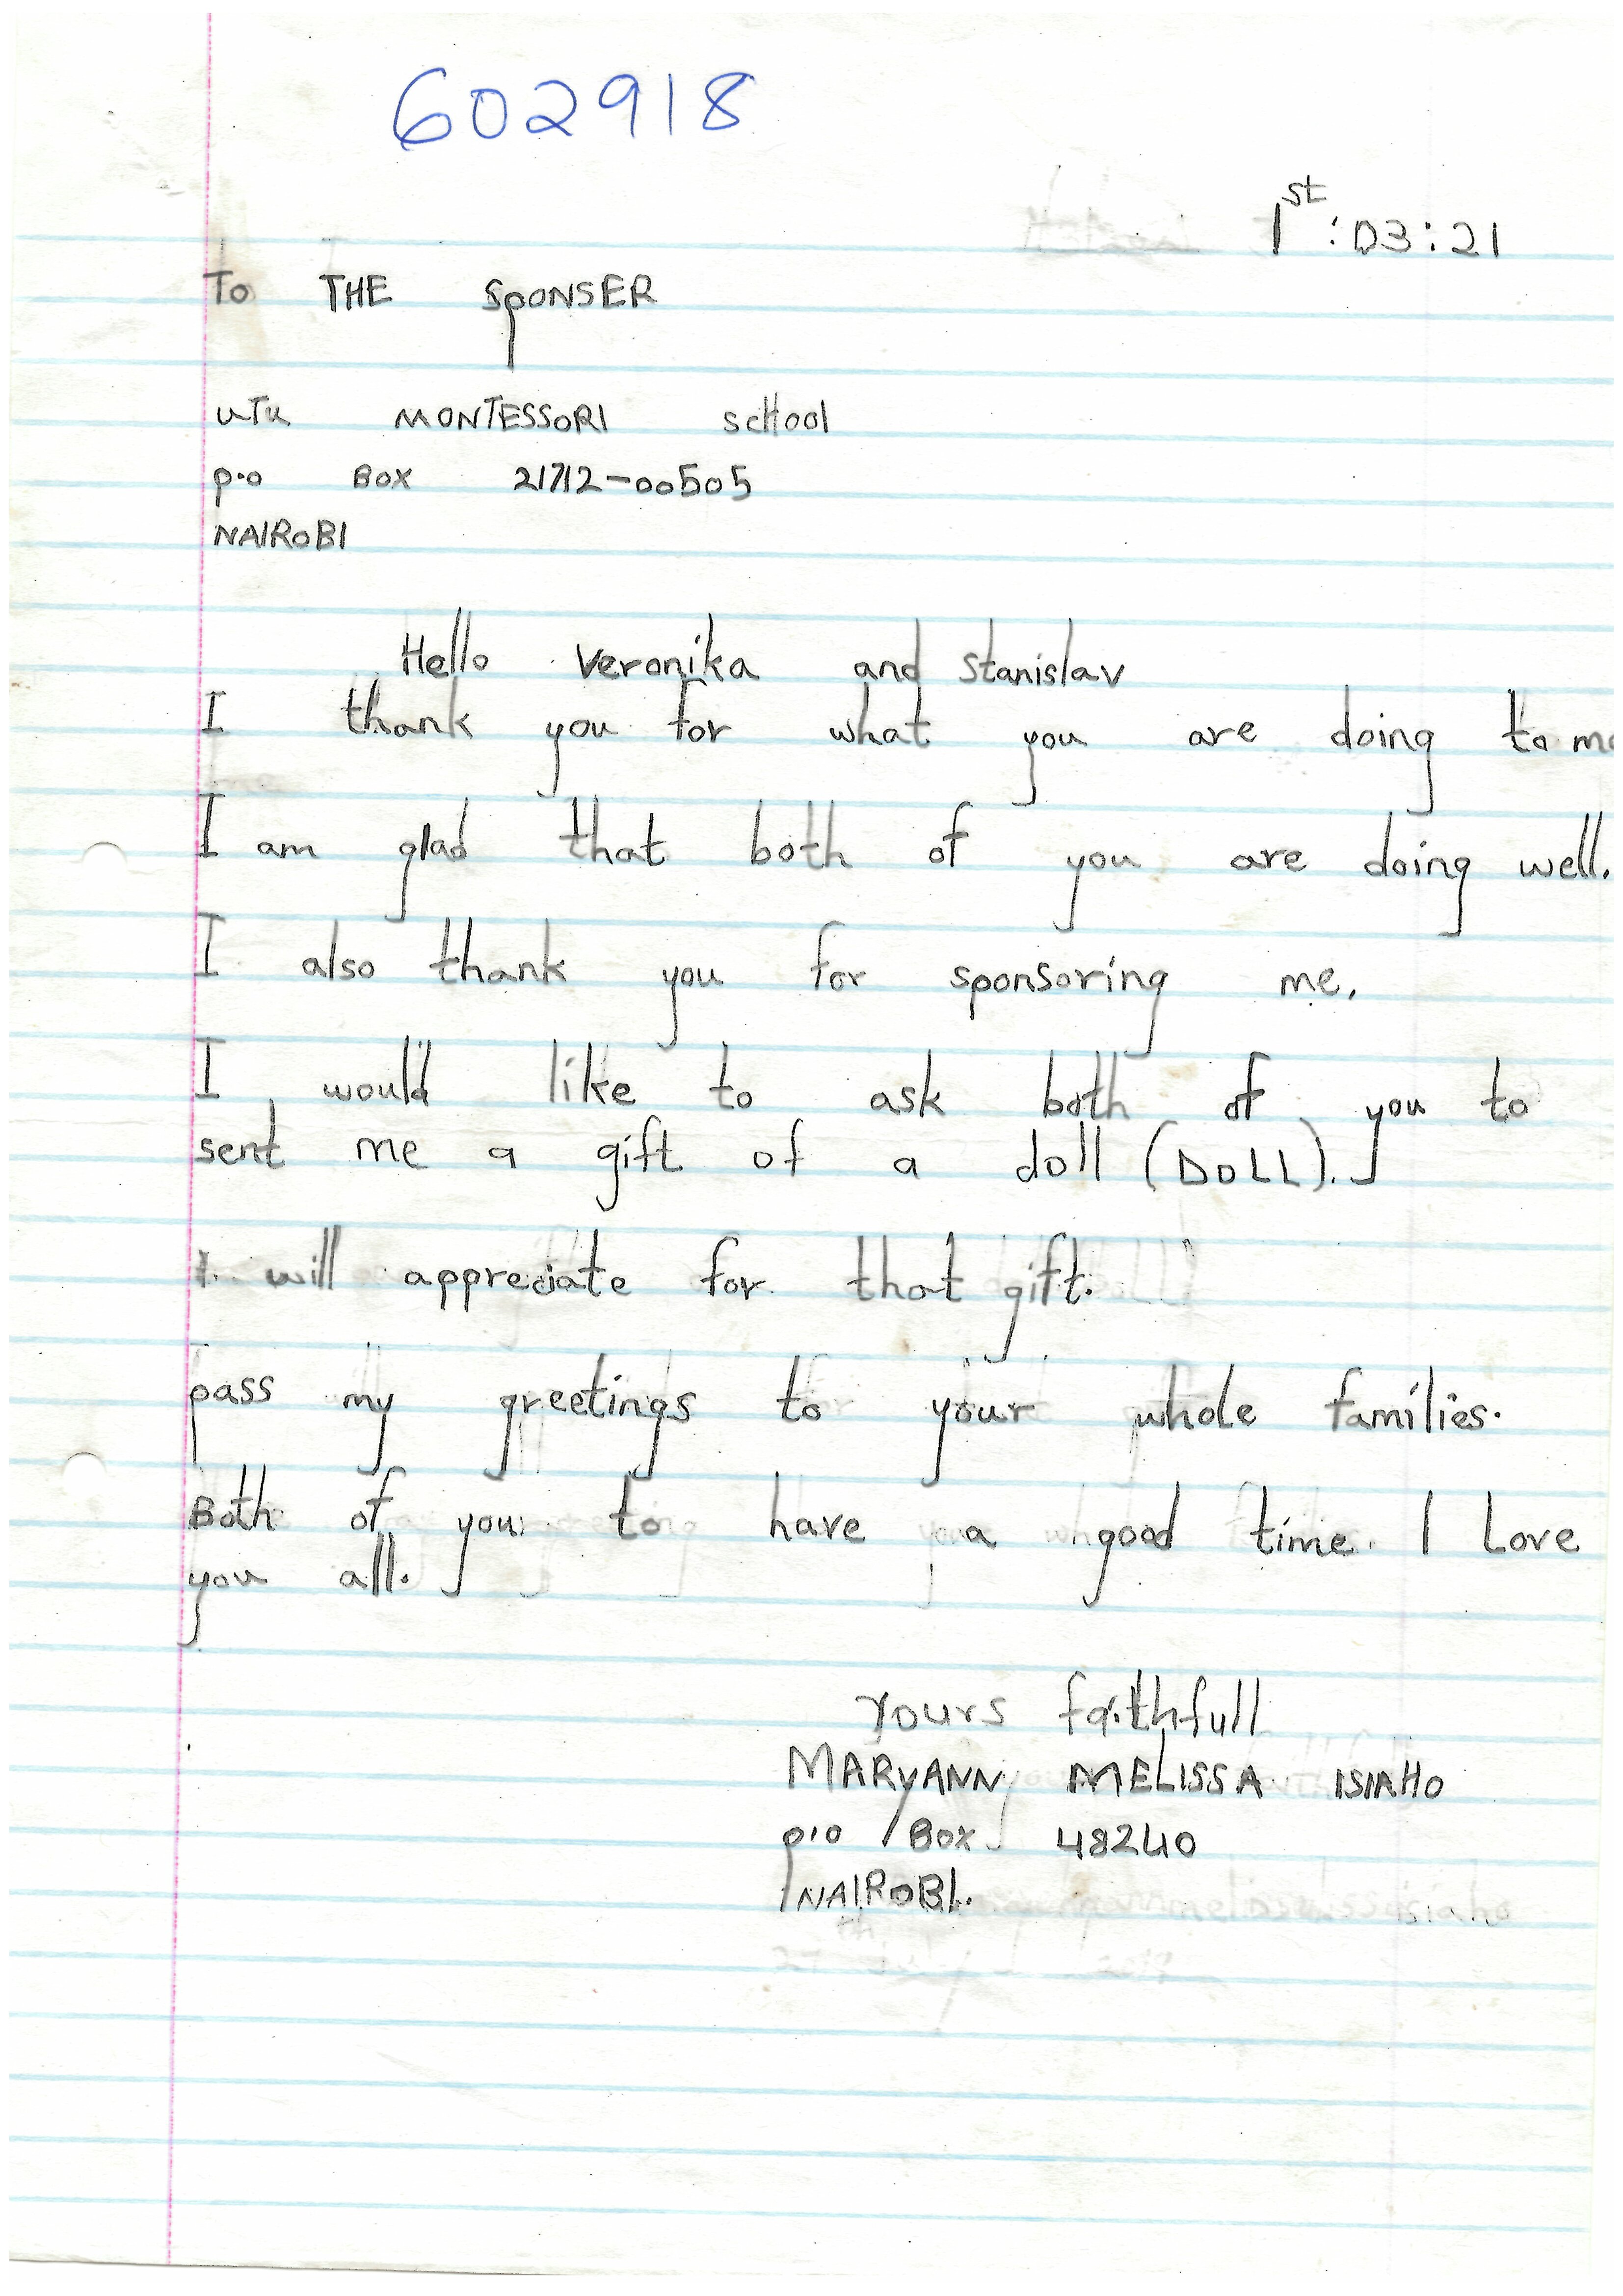 602918
1st:03:21
To THE SPONSER
UTU MONTESSORI scHool
p.o BOX 21712-00505
NAIROBI
Hello Veronika and Stanislav
I thank you for what you are doing to me
I am glad that both of you are doing well.
I also thank you for sponsoring me.
I would like to ask both of you to
sent me a gift of a doll (DOLL).
I will appreciate for that gift.
pass my greetings to your whole families.
Both of you to have a good time. I Love
you all.
Yours faithfull
MARYANN MELISSA ISIAHO
p.o Box 48240
NAIROBI.